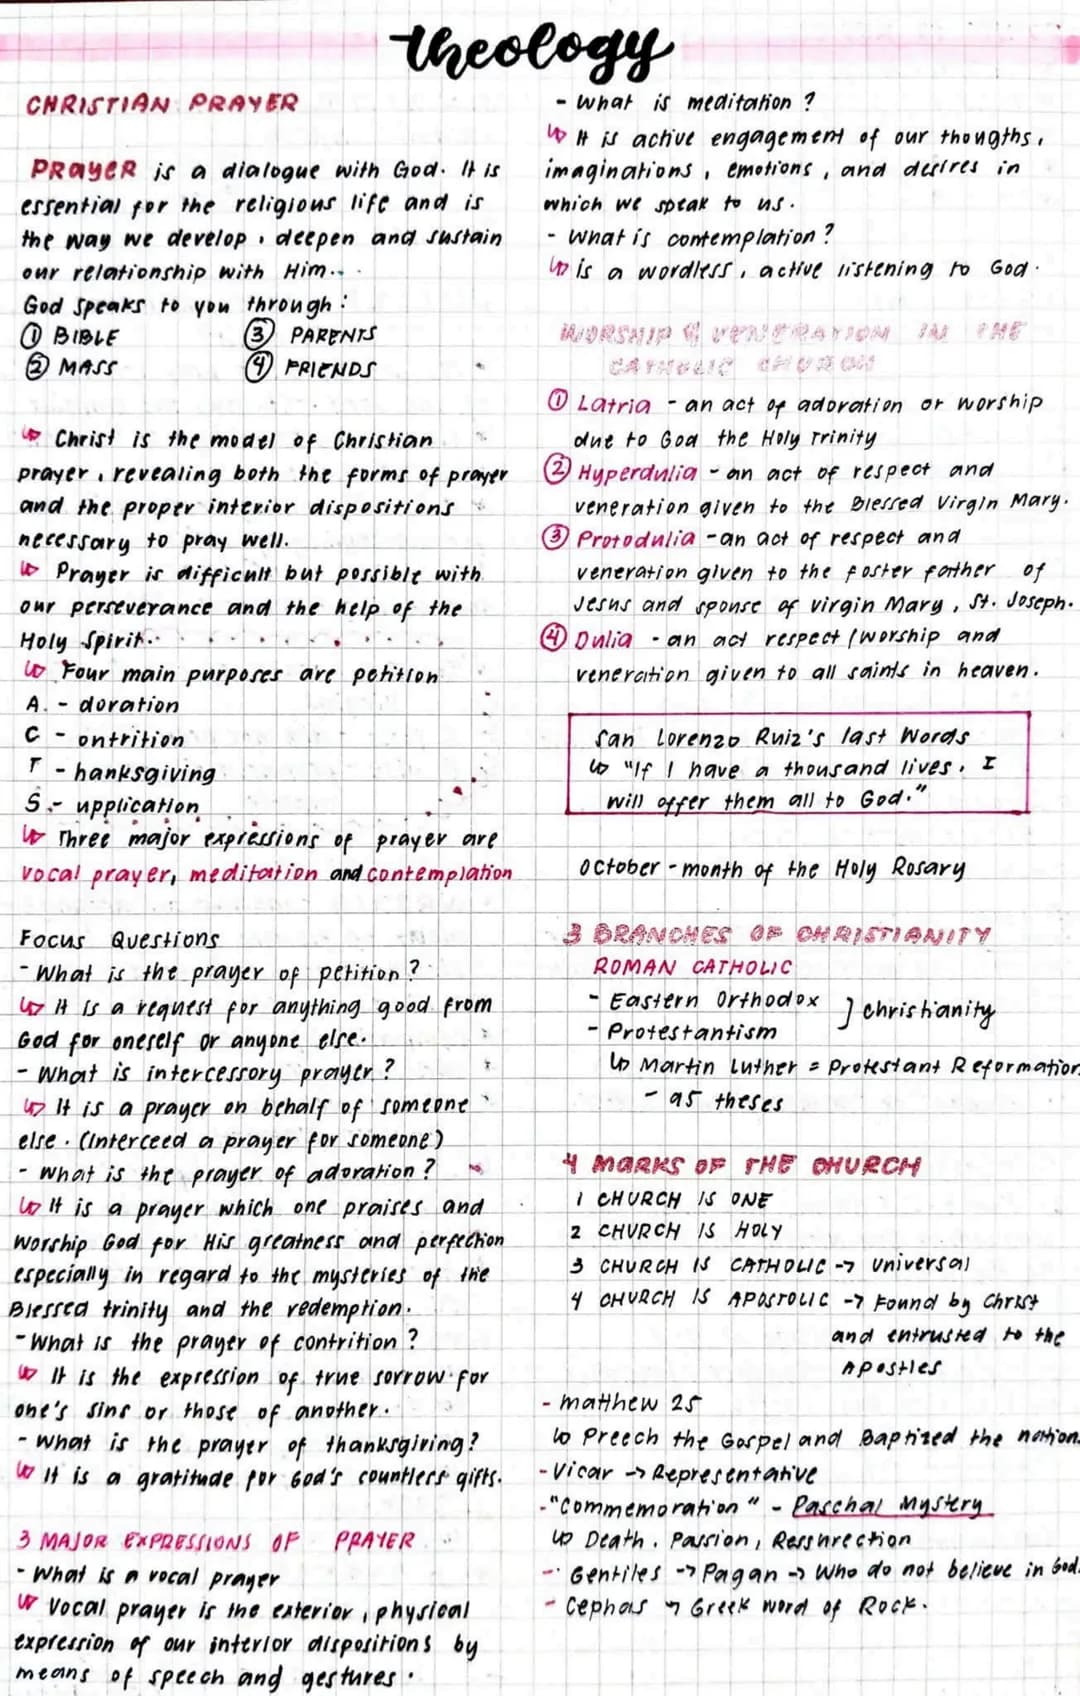 theology
CHRISTIAN PRAYER
PRAYER is a dialogue with God. It is
essential for the religious life and is
the way we develop, deepen and sustain
our relationship with Him..
God speaks to you through:
① BIBLE ③ PARENTS
② MASS ④ FRIENDS
↳ Christ is the model of Christian
prayer, revealing both the forms of prayer
and the proper interior dispositions
necessary to pray well.
↳ Prayer is difficult but possible with
our perseverance and the help of the
Holy Spirit..
↳ Four main purposes are petition
A. - doration
C - ontrition
T - hanksgiving
S. - upplication
↳ Three major expressions of prayer are
vocal prayer, meditation and contemplation
Focus Questions
- What is the prayer of petition?
↳ It is a request for anything good from
God for oneself or anyone else.
- What is intercessory prayer?
↳ It is a prayer on behalf of someone
else. (Interceed a prayer for someone)
- What is the prayer of adoration?
↳ It is a prayer which one praises and
worship God for His greatness and perfection
especially in regard to the mysteries of the
Blessed trinity and the redemption.
- What is the prayer of contrition?
↳ It is the expression of true sorrow for
one's sins or those of another.
- What is the prayer of thanksgiving?
↳ It is a gratitude for God's countless gifts.
3 MAJOR EXPRESSIONS OF PRAYER
- What is a vocal prayer
↳ Vocal prayer is the exterior, physical
expression of our interior dispositions by
means of speech and gestures.
- What is meditation?
↳ It is active engagement of our thougths,
imaginations, emotions, and desires in
which we speak to us.
- What is contemplation?
↳ is a wordless, active listening to God.
WORSHIP & VENERATION IN THE
CATHOLIC CHURCH
① Latria - an act of adoration or worship
due to God the Holy Trinity
② Hyperdulia - an act of respect and
veneration given to the Blessed Virgin Mary.
③ Protodulia - an act of respect and
veneration given to the foster father of
Jesus and spouse of virgin Mary, St. Joseph.
④ Dulia - an act respect / worship and
veneration given to all saints in heaven.
San Lorenzo Ruiz's last Words
↳ "If I have a thousand lives, I
will offer them all to God."
October - month of the Holy Rosary
3 BRANCHES OF CHRISTIANITY
ROMAN CATHOLIC
- Eastern Orthodox ] Christianity
- Protestantism
↳ Martin Luther = Protestant Reformation
- 95 theses
4 MARKS OF THE CHURCH
1 CHURCH IS ONE
2 CHURCH IS HOLY
3 CHURCH IS CATHOLIC → Universal
4 CHURCH IS APOSTOLIC → Found by Christ
and entrusted to the
Apostles
- Matthew 25
↳ Preech the Gospel and Baptized the nation.
- Vicar → Representative
- "Commemoration" - Paschal Mystery
↳ Death, Passion, Ressurection
- Gentiles → Pagan → Who do not believe in God.
- Cephas → Greek word of Rock.